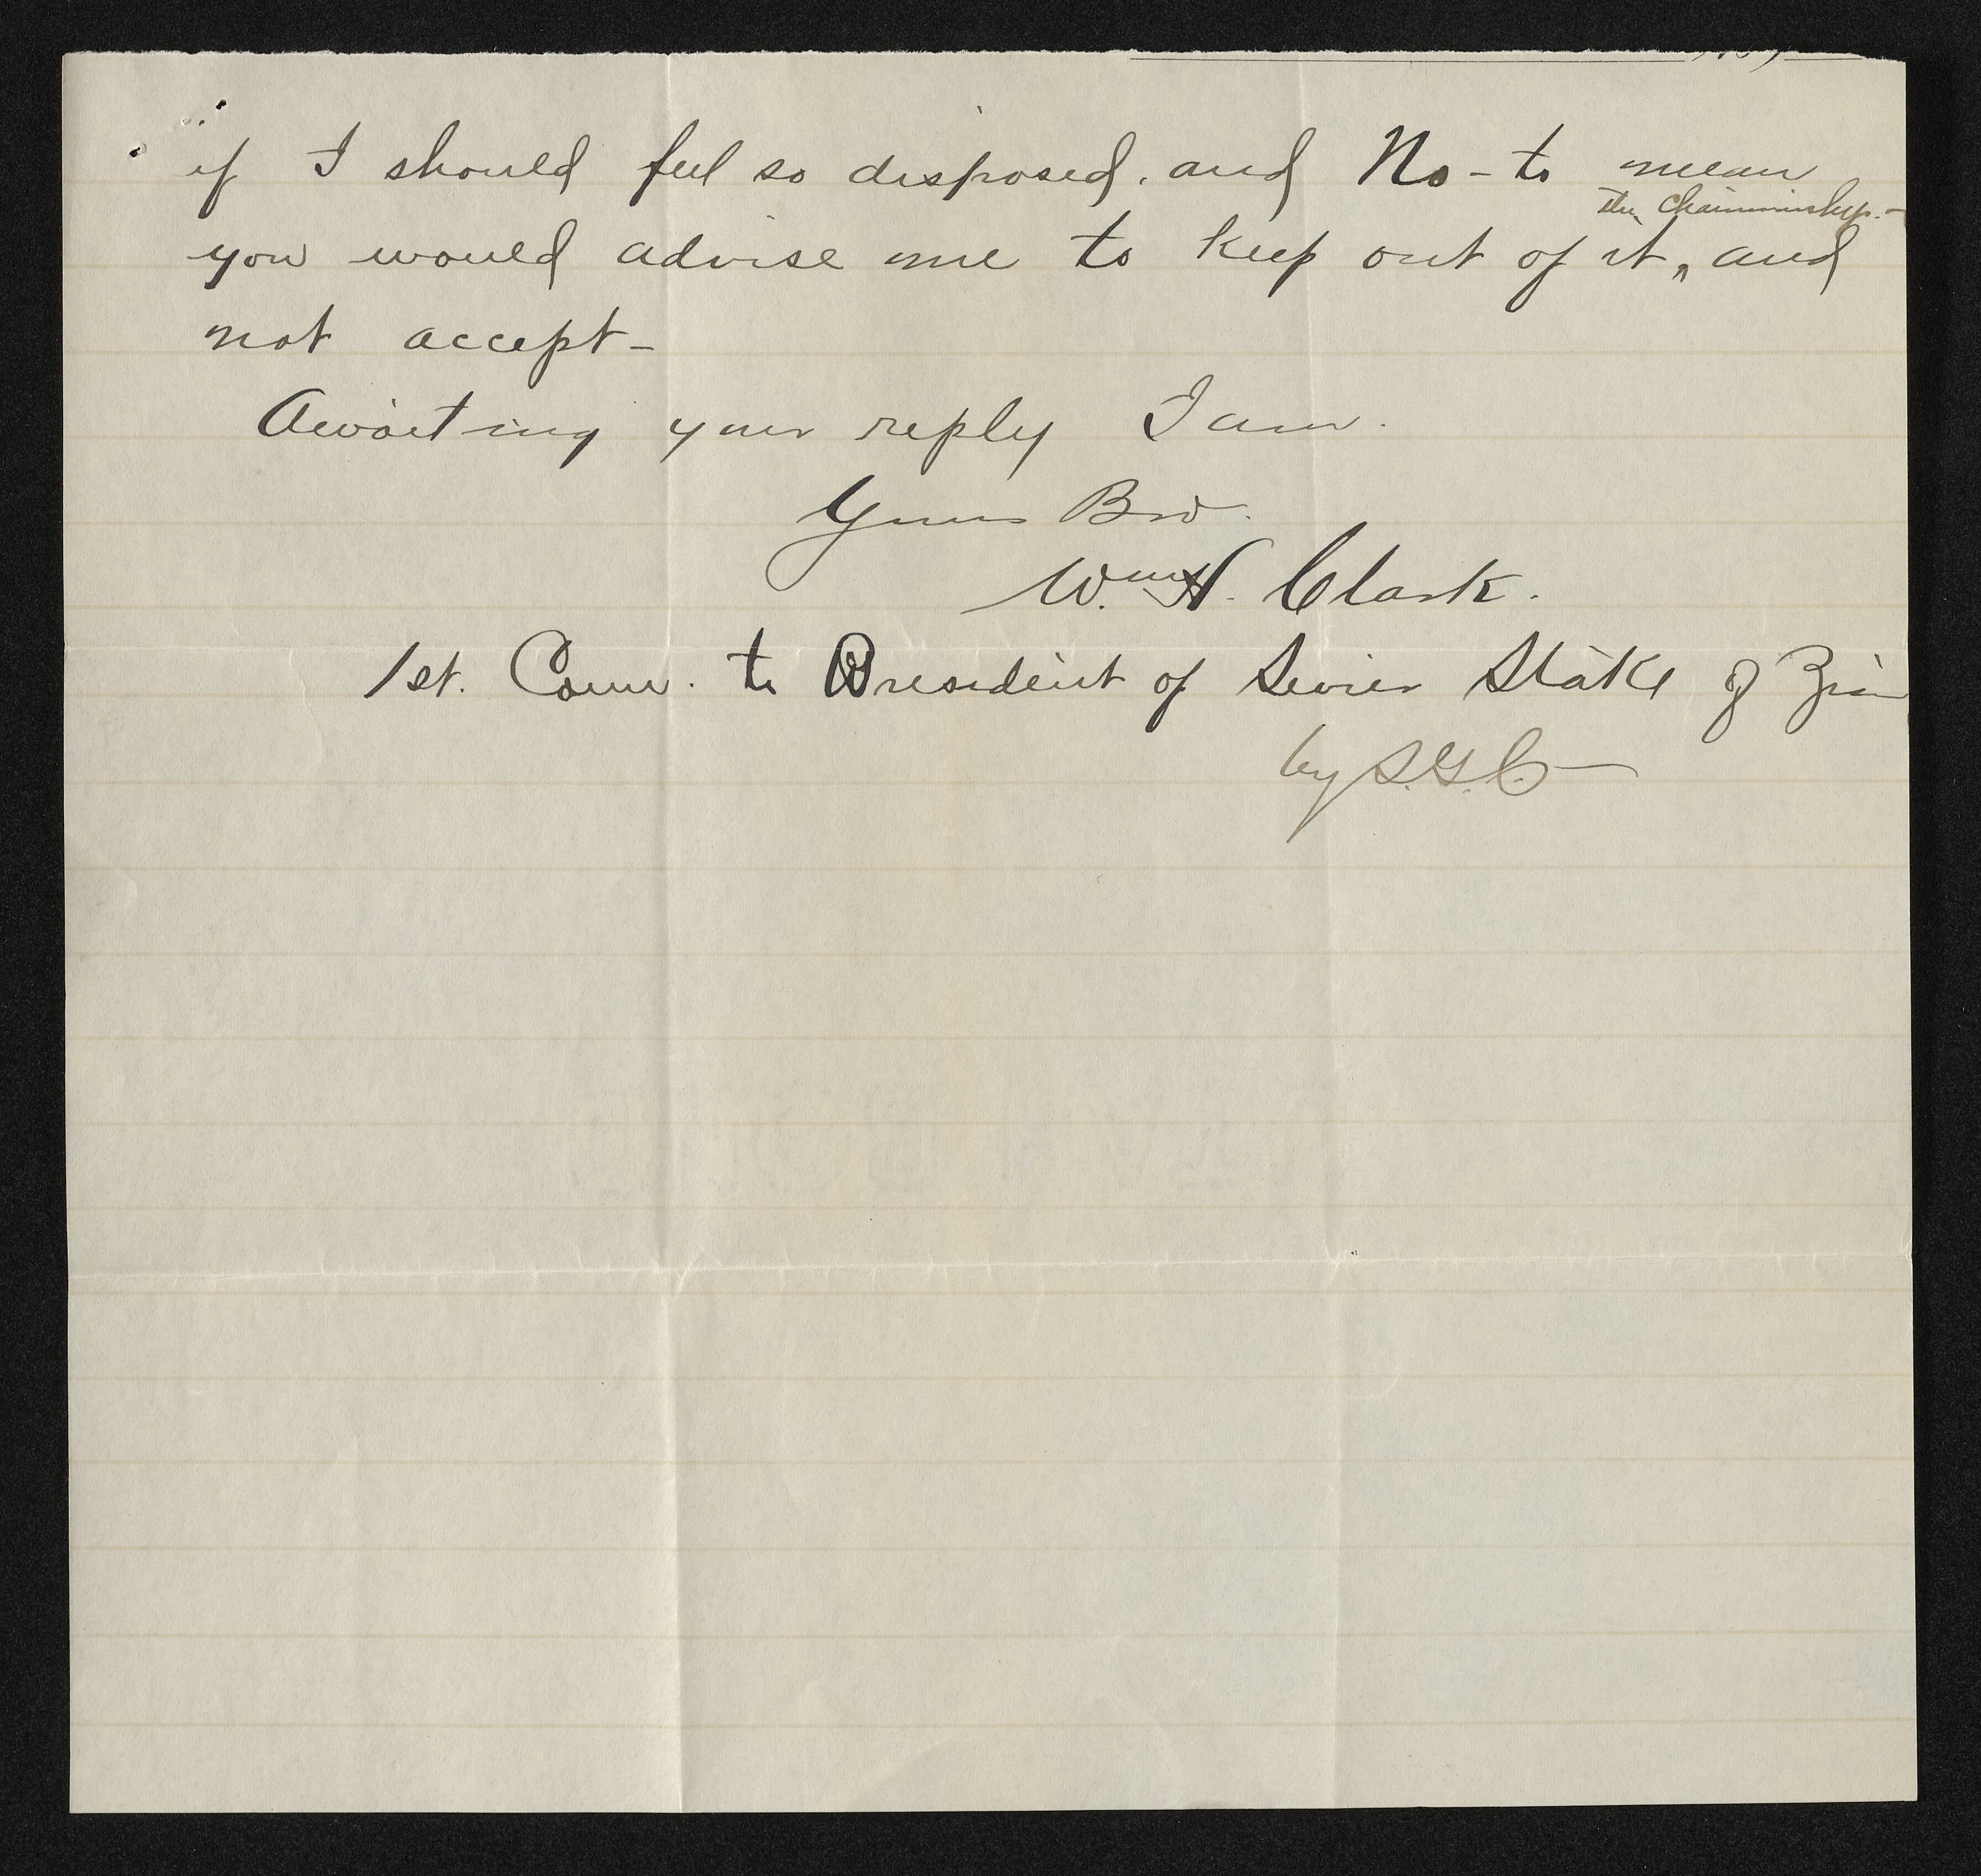 if I should feel so disposed. and No - to mean
the Chairmanship. -
you would advise me to keep out of it, and
not accept -
Awaiting your reply I am.
Yours Bro.
Wm H. Clark.
1st. Coun. to President of Sevier Stake of Zion
by S.G.C.